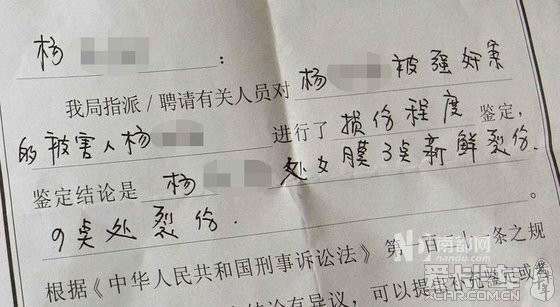 杨
：
我局指派/聘请有关人员对 杨 被强奸案
的被害人杨 进行了 损伤程度 鉴定，
鉴定结论是 杨 处女膜3点新鲜裂伤.
9点处裂伤. 。
根据《中华人民共和国刑事诉讼法》第一百 十 条之规
结论有异议，可以提出补充鉴定或者
南都网
nandu.com
爱卡汽车
XCAR.COM.CN